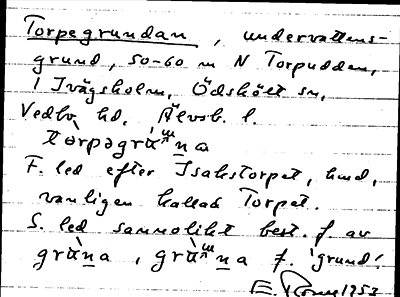 Torpegrundan, undervattens-
grund, 50-60 m N Torpudden,
i Ivägsholm, Ödskölt sn,
Vedbo hd. Älvsb. l.
F. led efter Isakstorpet, hmd,
vanligen kallad Torpet.
S. led sannolikt best. f. av
f. 'grund'.
1953